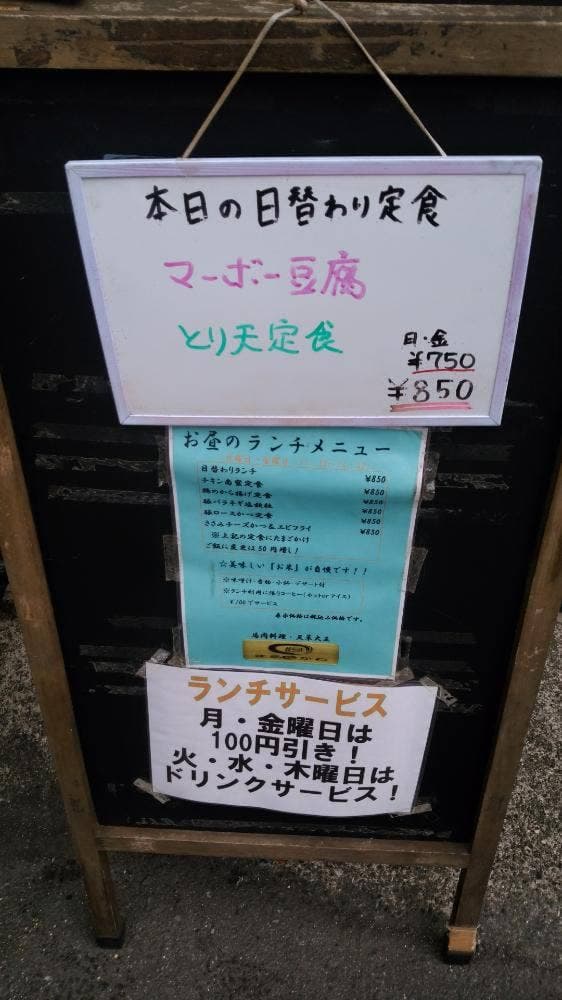 本日の日替わり定食
マーボー豆腐
とり天定食
日・金
¥750
¥850
お昼のランチメニュー
日替わりランチ ¥850
チキン南蛮定食 ¥850
鶏のから揚げ定食 ¥850
豚バラネギ塩鉄板 ¥850
豚ロースかつ定食 ¥850
ささみチーズかつ&エビフライ ¥850
※上記の定食にたまごかけ
ご飯に変更は50円増し!
☆美味しい「お米」が自慢です!!
※味噌汁・香物・小鉢・デザート付
※ランチ利用に限りコーヒー(ホットorアイス)
¥100でサービス
表示価格は税込み価格です。
馬肉料理・天草大王
ランチサービス
月・金曜日は
100円引き!
火・水・木曜日は
ドリンクサービス!